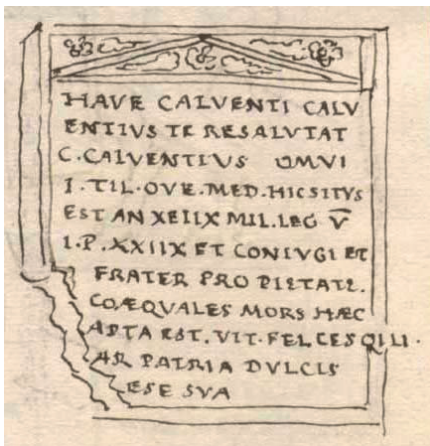 HAVE CALVENTI CALV
ENTIVS TE RESALVTAT
C. CALVENTIVS OMVI
I. TIL. OVE. MED. HIC SITVS
EST AN XEIIX MIL. LEG V̅
I. P. XXIIX ET CONIVGI ET
FRATER PRO PIETATE.
COÆQVALES MORS HÆC
APTA EST. VIT. FELCES QI LI.
AR PATRIA DVLCIS
ESE SVA